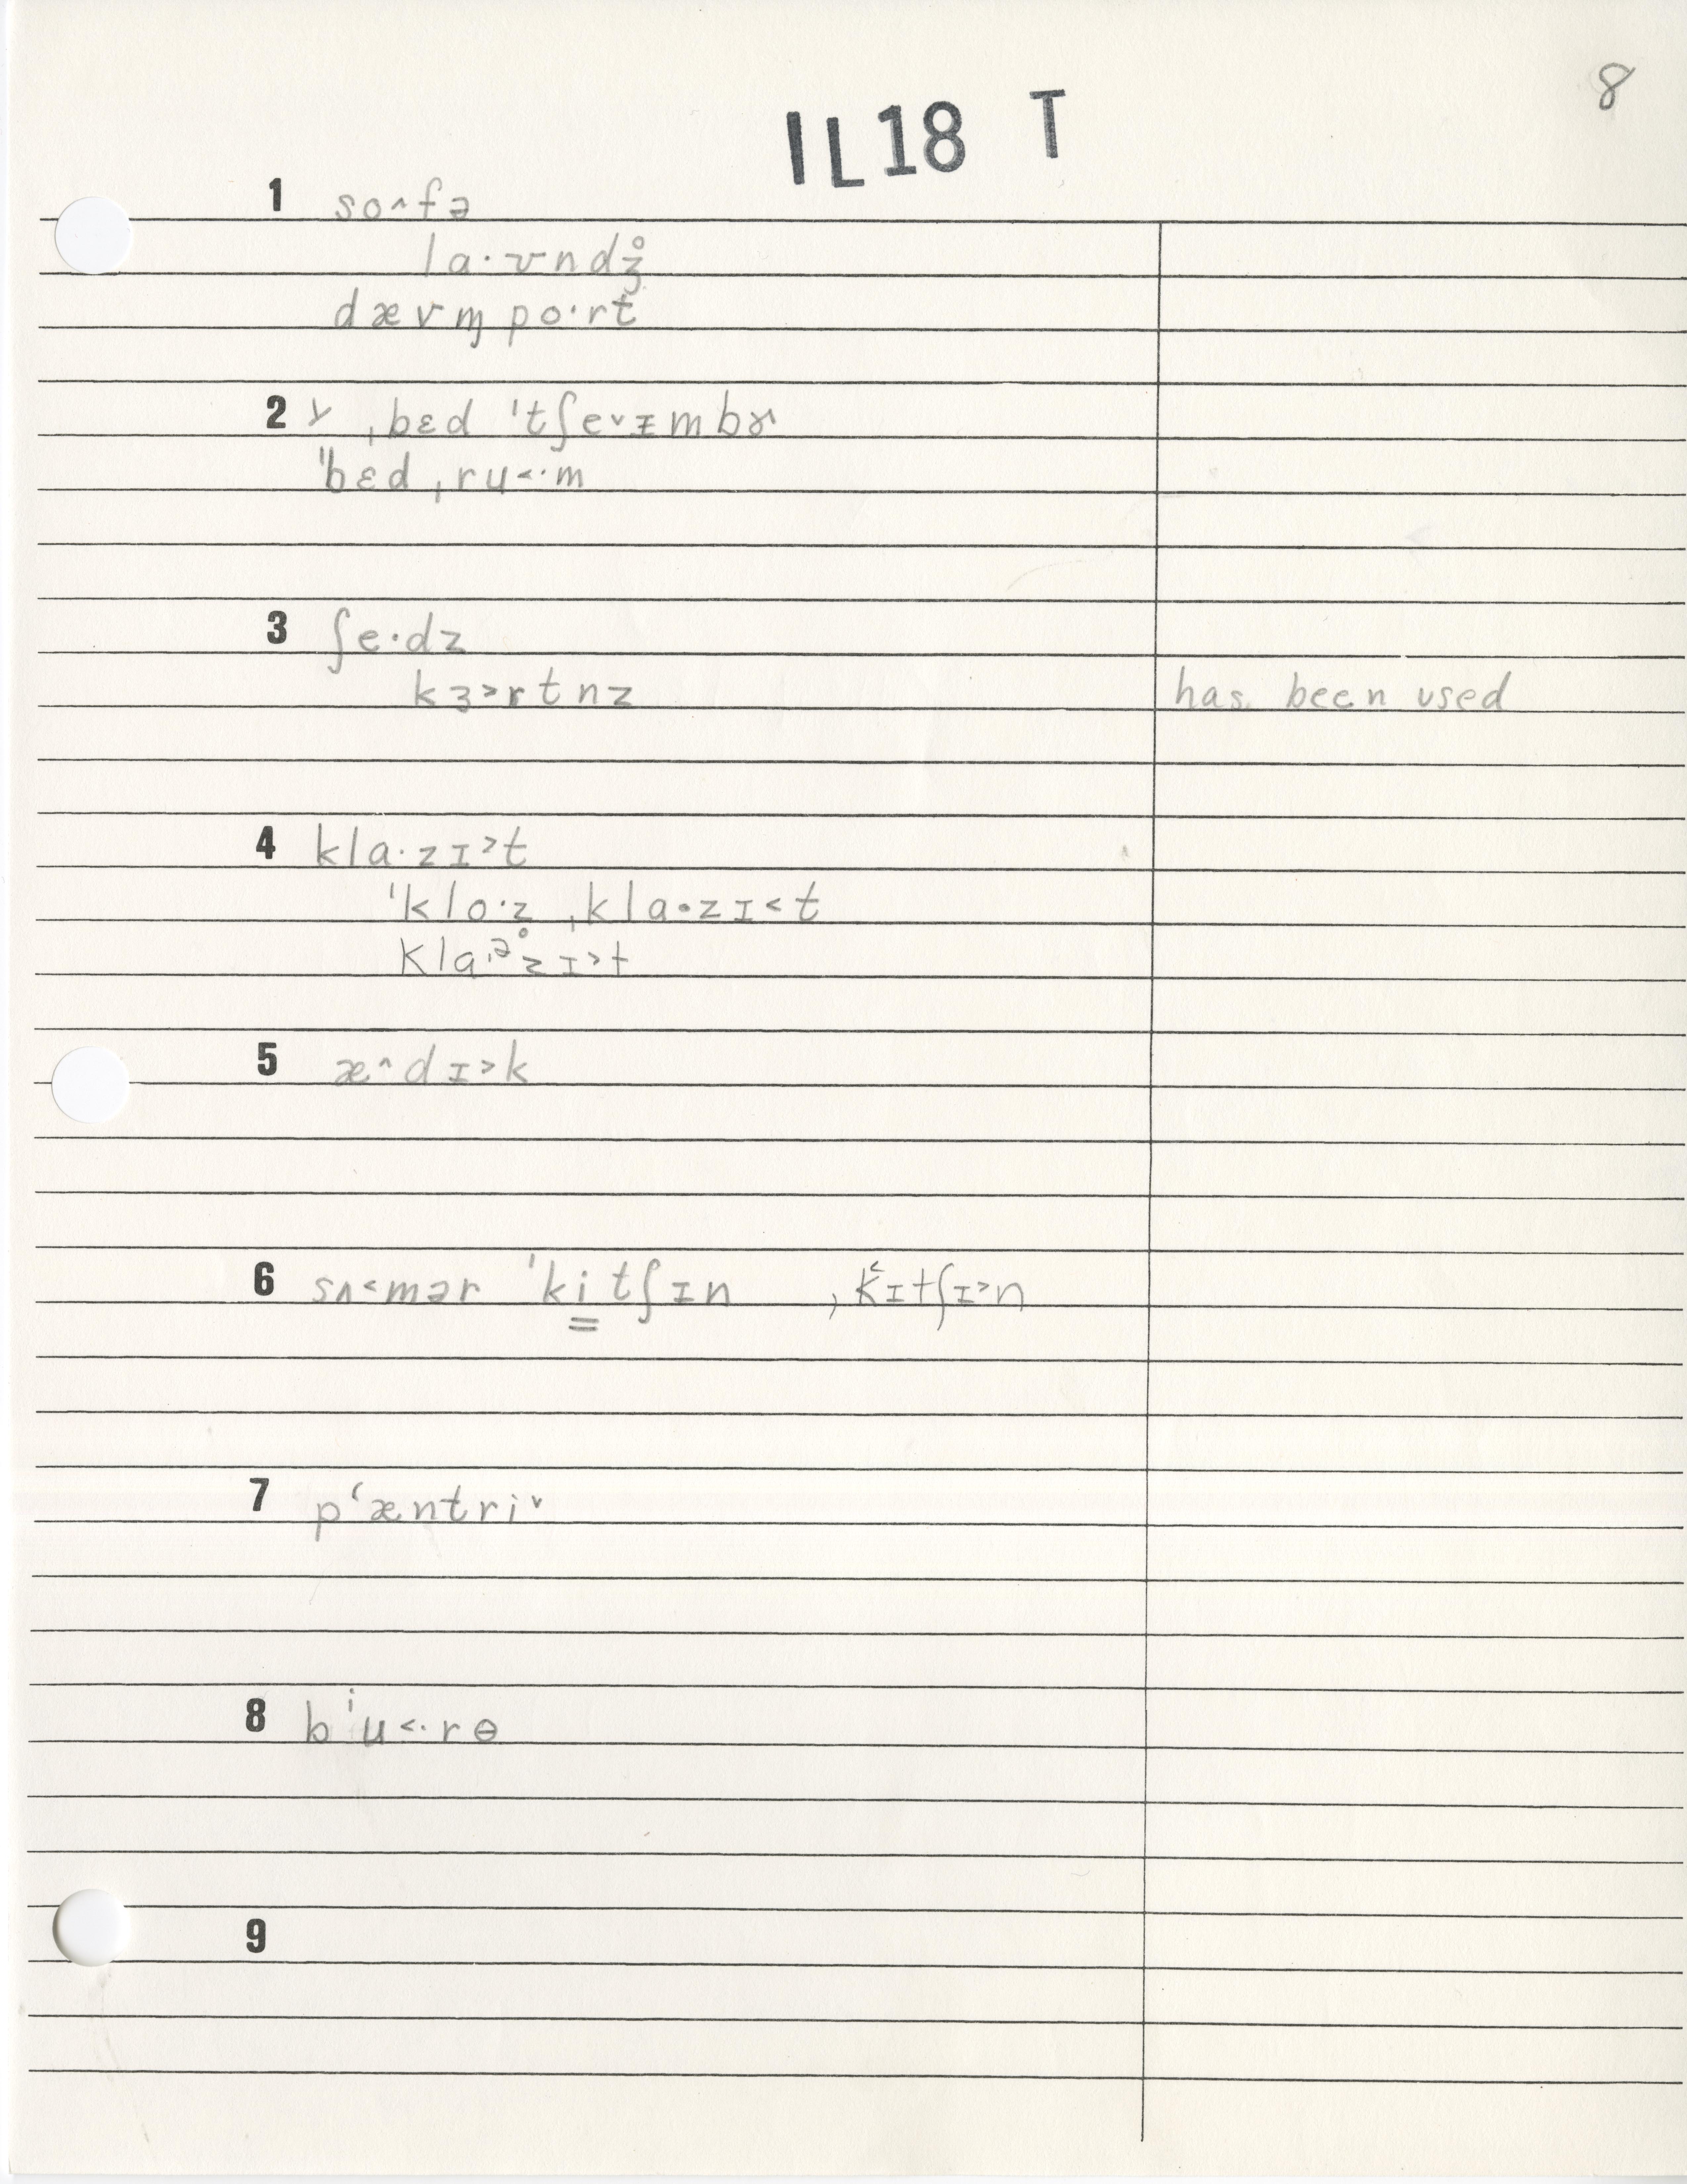 8
IL18 T
1 so˄fə
la·ʊndʒ̊
dævm̩po·rt
2 ˌbɛd ˈtʃe˅ɪmbɚ
ˈbɛdˌru˂·m
3 ʃe·dz
kɜ˃rtnz has been used
4 kla·zɪ˃t
ˈklo·z ˌkla·zɪ˂t
kla·ᵊz̥ɪ˃t
5 æ˄dɪ˃k
6 sʌ˂mər ˈkitʃɪn , k̔ɪtʃɪ˃n
7 pʻæntri˅
8 bⁱu˂·rɵ
9